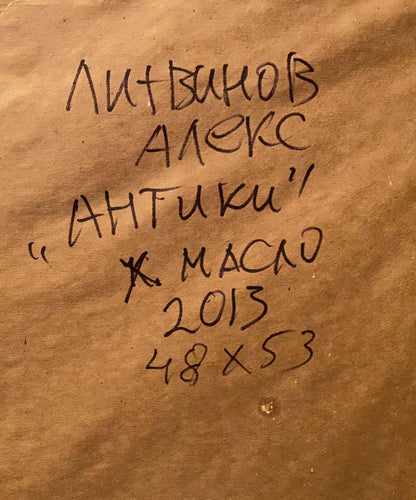 ЛИТВИНОВ
АЛЕКС
„АНТИКИ"
Х. МАСЛО
2013
48 X 53